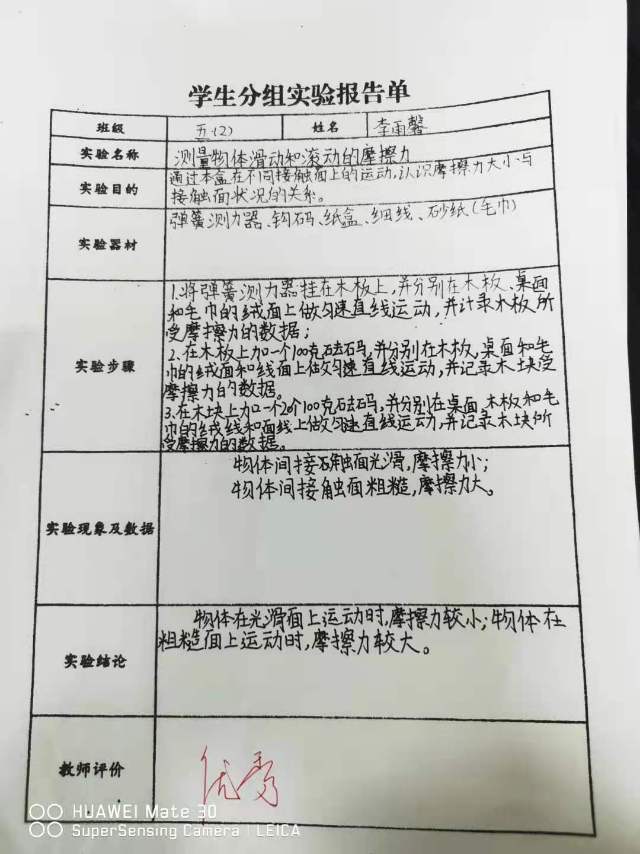 学生分组实验报告单
班级 五(2) 姓名 李雨馨
实验名称 测量物体滑动和滚动的摩擦力
实验目的 通过本盒在不同接触面上的运动,认识摩擦力大小与
接触面状况的关系。
实验器材 弹簧测力器、钩码、纸盒、细线、砂纸(毛巾)
实验步骤
1.将弹簧测力器挂在木板上,并分别在木板、桌面
和毛巾的绒面上做匀速直线运动,并计录木板所
受摩擦力的数据;
2.在木板上加一个100克砝码,并分别在木板,桌面和毛
巾的绒面和线面上做匀速直线运动,并记录木块受
摩擦力的数据。
3.在木块上加一个20个100克砝码,并分别在桌面、木板和毛
巾的绒线和面线上做匀速直线运动,并记录木块所
受摩擦力的数据。
实验现象及数据
物体间接触面光滑,摩擦力小;
物体间接触面粗糙,摩擦力大。
实验结论
物体在光滑面上运动时,摩擦力较小;物体在
粗糙面上运动时,摩擦力较大。
教师评价 优秀
HUAWEI Mate 30
SuperSensing Camera | LEICA